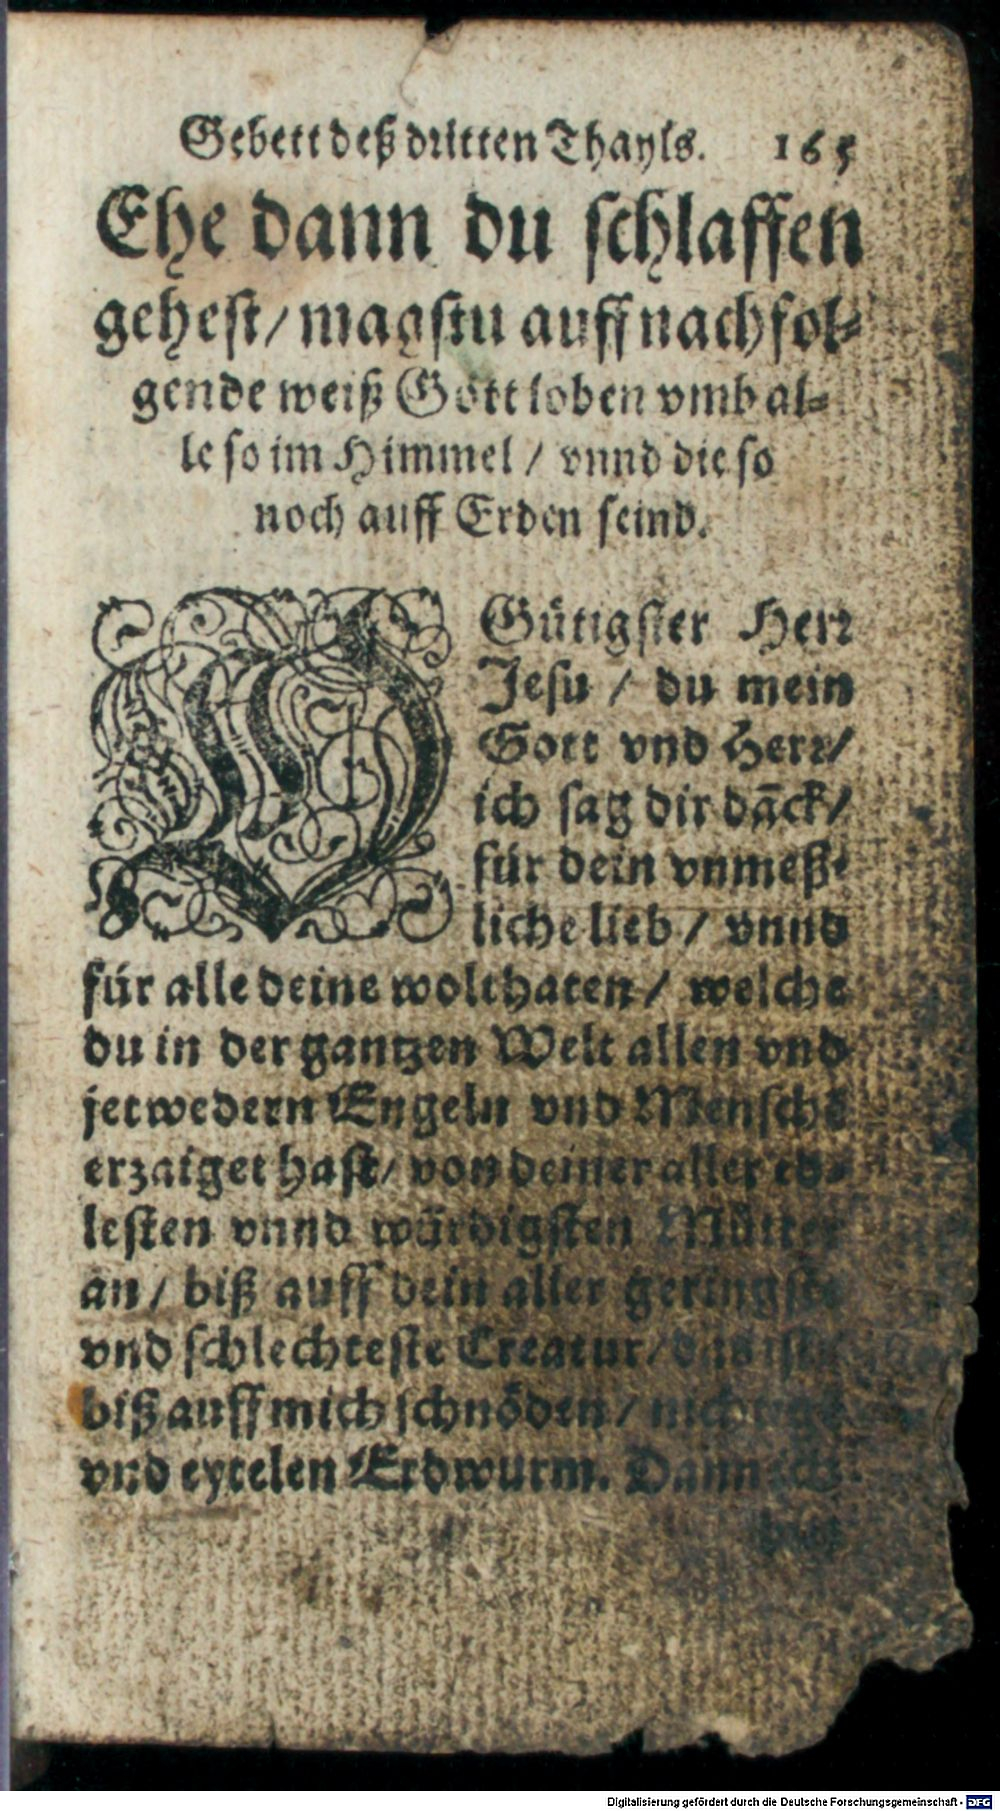 Gebett deß dritten Thayls. 165
Ehe dann du schlaffen
gehest/ magstu auff nachfol-
gende weiß Gott loben vmb al-
le so im Himmel / vnnd die so
noch auff Erden seind.
O Gütigster Herr
Jesu / du mein
Gott vnd Herr/
ich sag dir dāck/
für dein vnmeß-
liche lieb / vnnd
für alle deine wolthaten / welche
du in der gantzen Welt allen vnd
jetwedern Engeln vnd Menschē
erzaiget hast/ von deiner aller ed-
lesten vnnd würdigsten Mutter
an / biß auff dein aller geringste
vnd schlechteste Creatur/ das ist
biß auff mich schnöden /
vnd eytelen Erdwurm. Dann ich
Digitalisierung gefördert durch die Deutsche Forschungsgemeinschaft - DFG